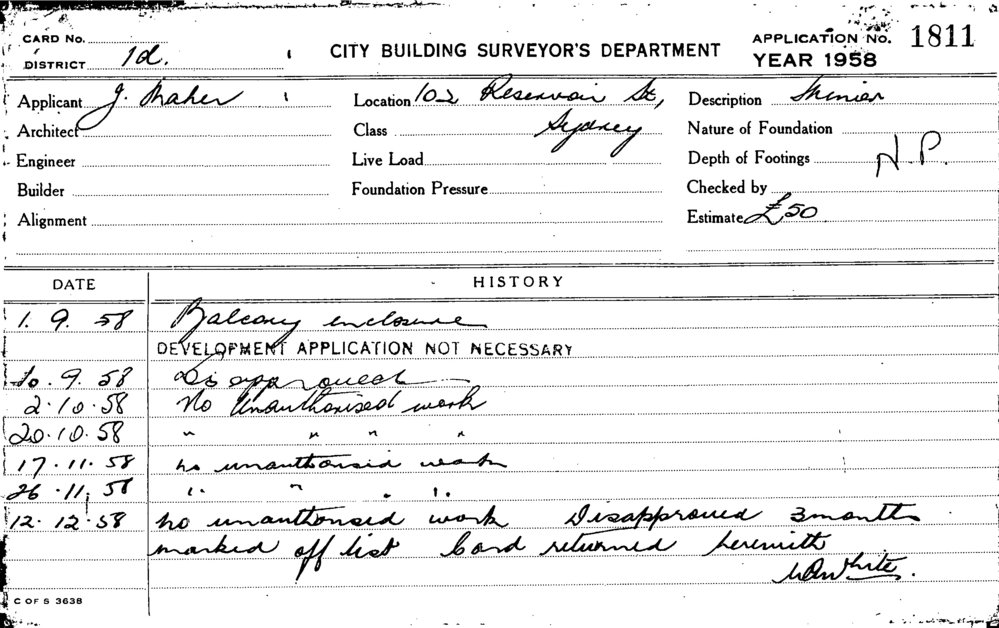 CARD No.
DISTRICT 1d.
CITY BUILDING SURVEYOR'S DEPARTMENT
APPLICATION No. 1811
YEAR 1958
Applicant J. Maher
Location 102 Reservoir St,
Description Minor
Architect
Class Sydney
Nature of Foundation
Engineer
Live Load
Depth of Footings N.P.
Builder
Foundation Pressure
Checked by
Alignment
Estimate £50
DATE HISTORY
1. 9. 58 Balcony enclosure
DEVELOPMENT APPLICATION NOT NECESSARY
10. 9. 58 Disapproved
2.10.58 No Unauthorised work
20.10.58 " " " "
17.11.58 no unauthorised work
26.11.58 " " " "
12.12.58 no unauthorised work Disapproved 3 months
marked off list Card returned herewith
White.
C OF S 3638